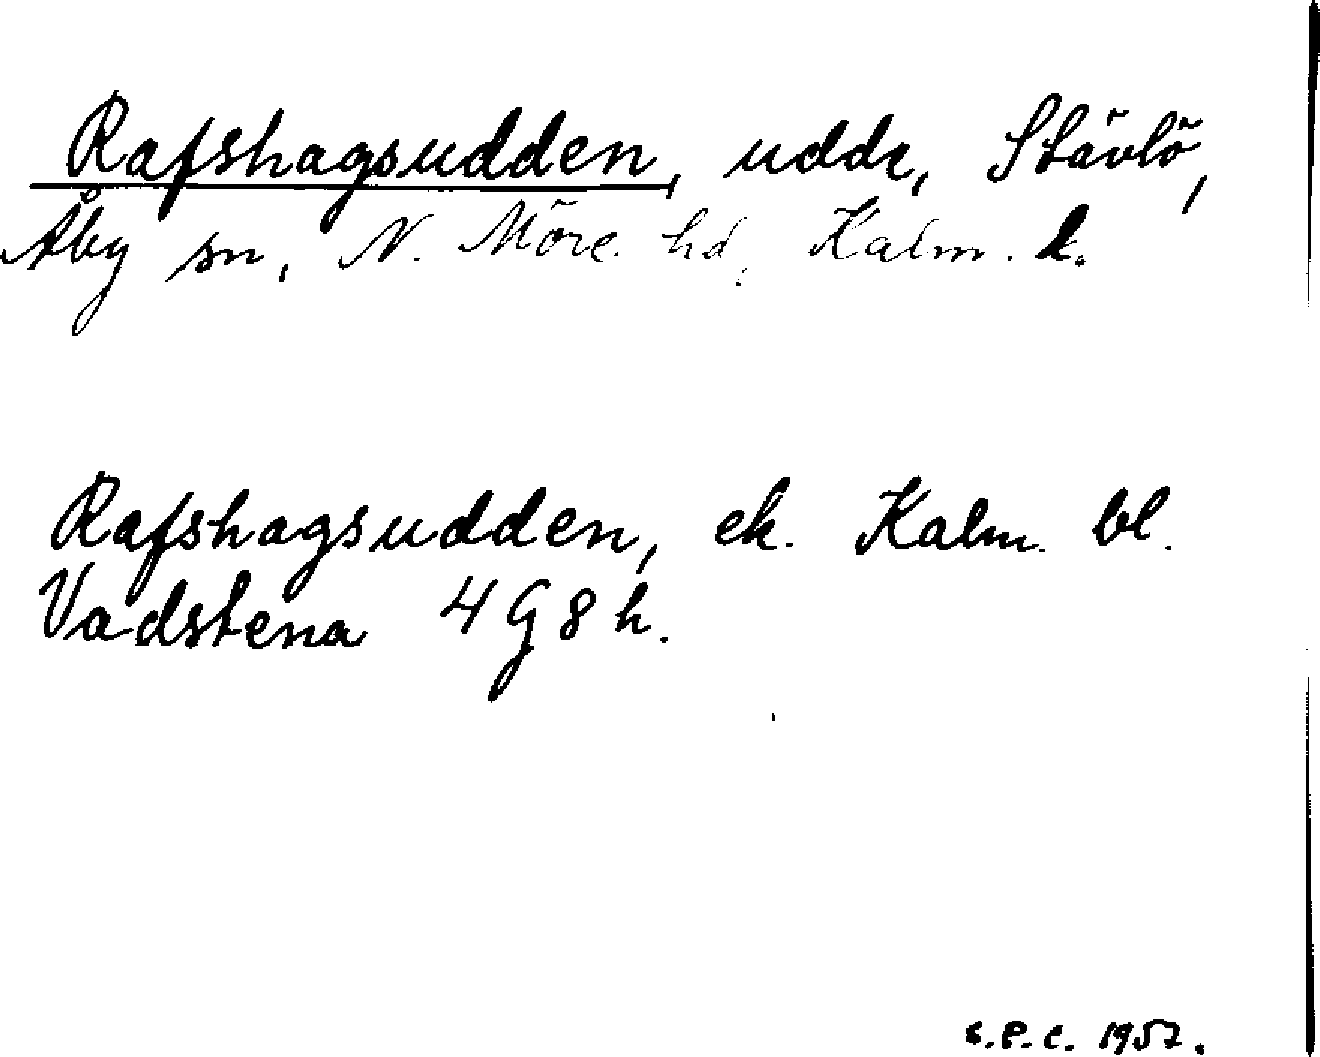 Rafshagsudden, udde, Stävlö,
Åby sn, N. Möre hd, Kalm. l.
Rafshagsudden, ek. Kalm. bl.
Vadstena 4 G 8 h.
S.P.C. 1957.